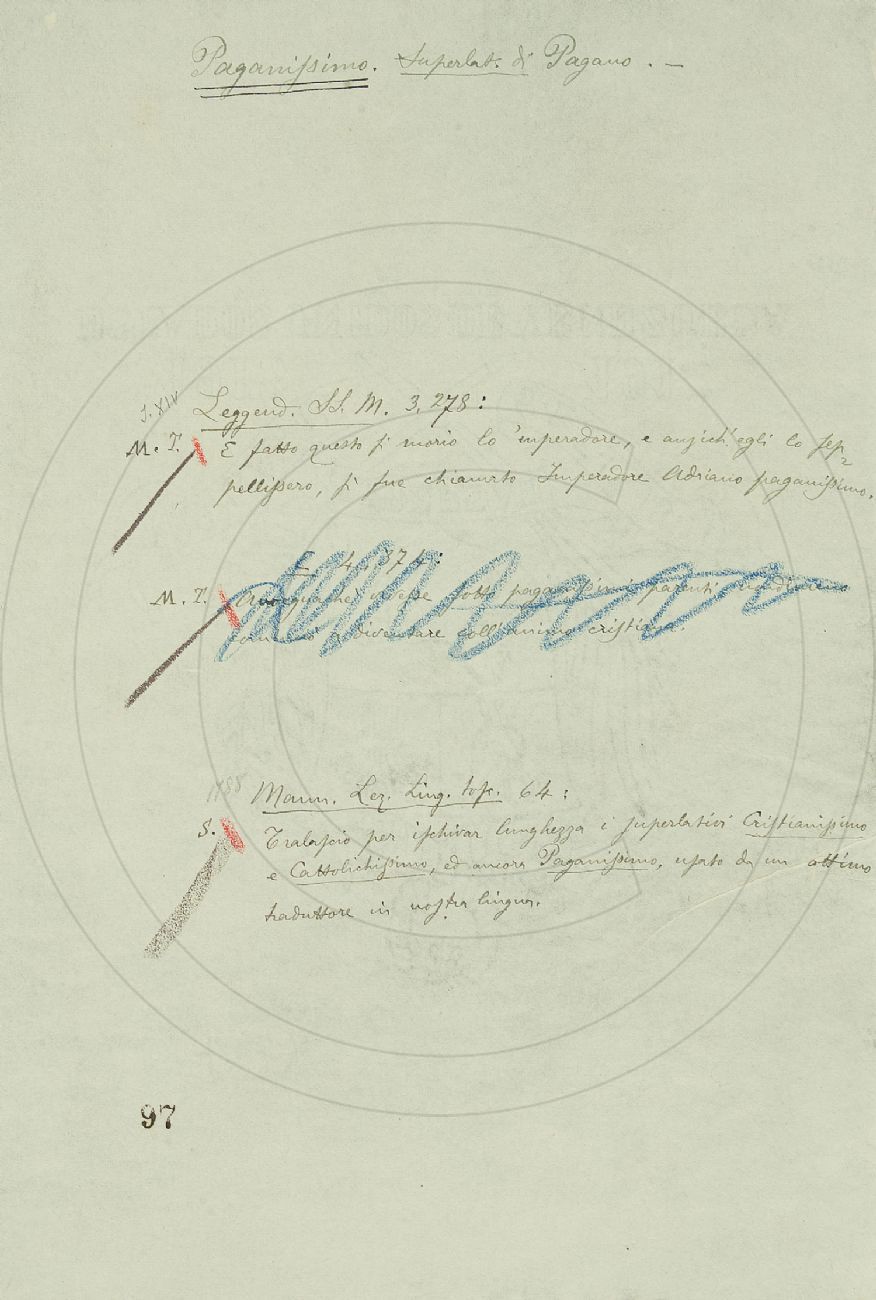 Paganissimo. Superlat. di Pagano. —
S. XIV
Leggend. SS. M. 3, 278:
M. T. E fatto questo si morio lo 'mperadore, e anzichè egli lo sep=
pellissero, si fue chiamato Imperadore Adriano paganissimo.
E 4, 374:
M. T. Avvegnachè avesse sotto paganissimi parenti
diventare coll'animo cristiano.
Mann. Lez. Ling. tosc. 64:
S. Tralascio per ischivar lunghezza i superlativi Cristianissimo
e Cattolichissimo, ed ancora Paganissimo, usato da un ottimo
traduttore in nostra lingua.
97